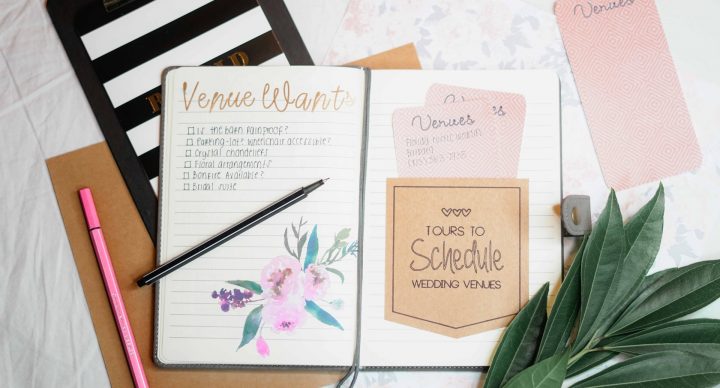 Venue Wants
Is the barn rainproof?
Parking-lot wheelchair accessible?
Crystal chandeliers
Floral arrangements
Bonfire Available?
Bridal suite
Venues
Venues
TOURS TO
Schedule
WEDDING VENUES